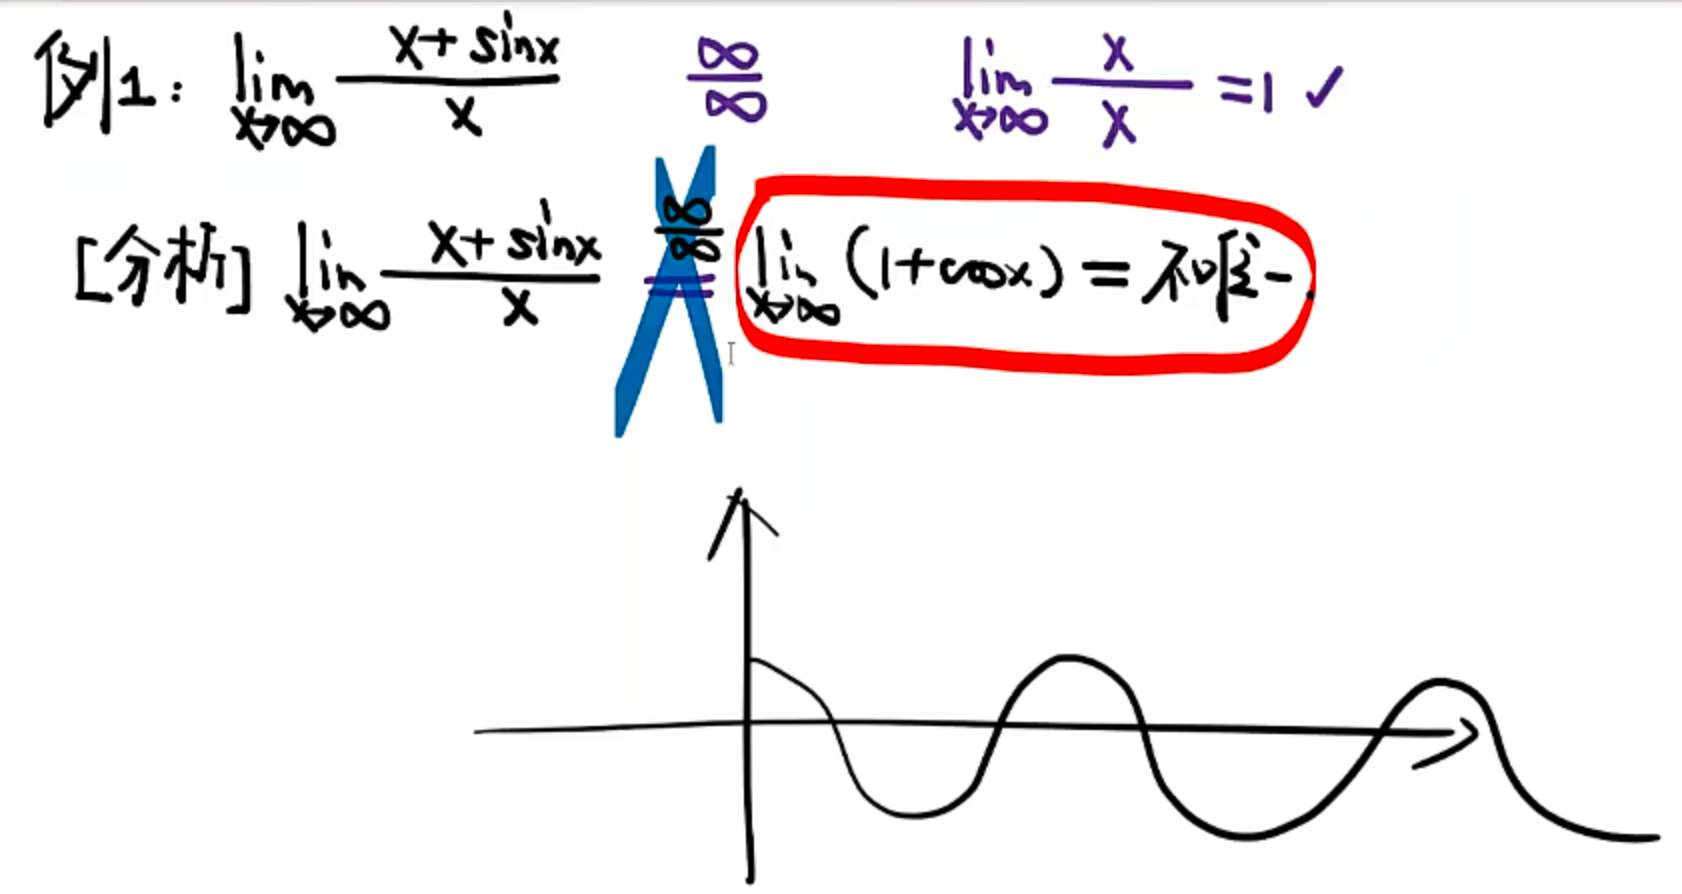 例1: lim x→∞ (x+sinx)/x ∞/∞ lim x→∞ x/x =1 ✓
[分析] lim x→∞ (x+sinx)/x ∞/∞ = lim x→∞ (1+cosx) = 不唯一.